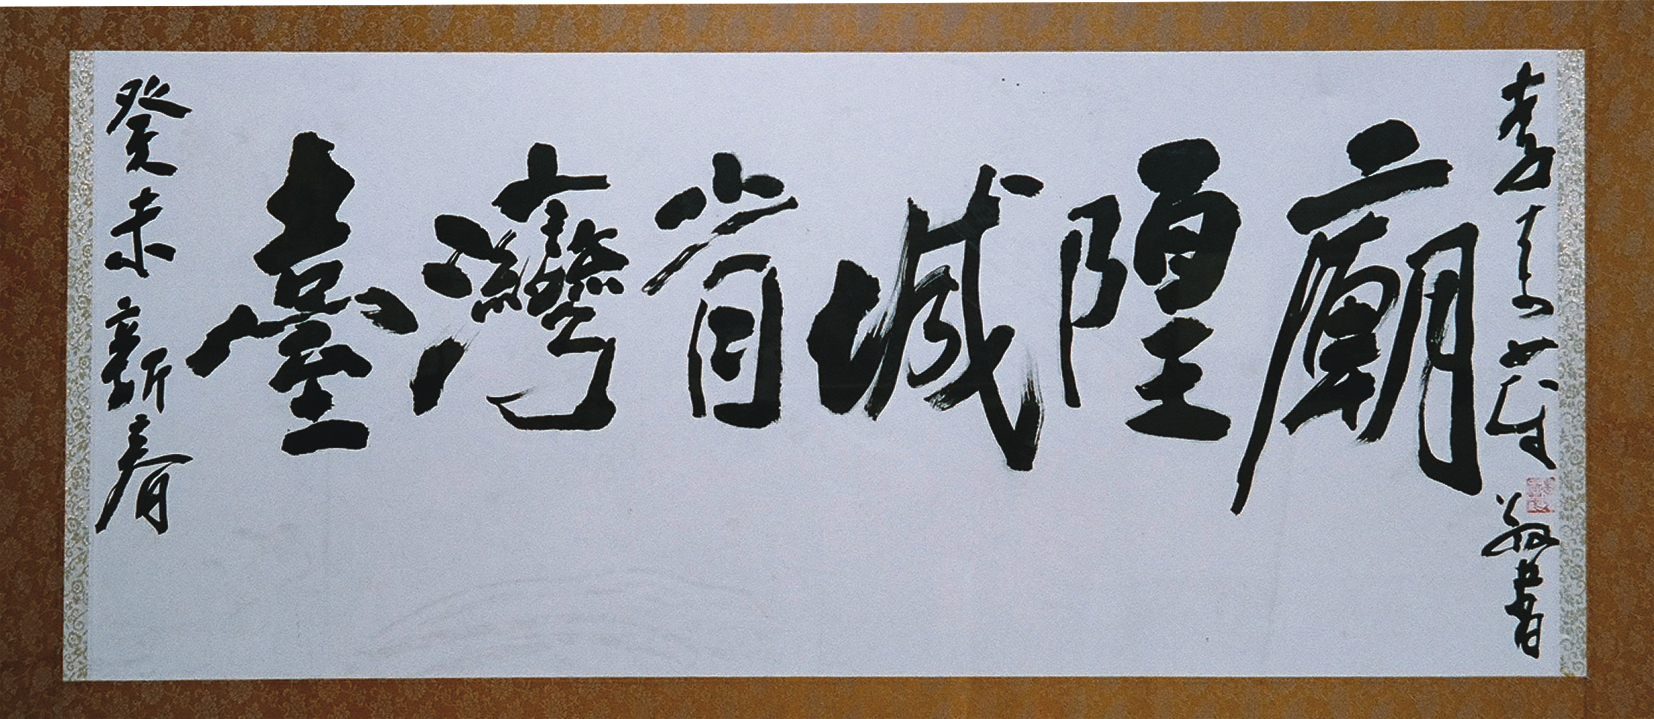 癸未新春
臺灣省城隍廟
李奇茂敬書